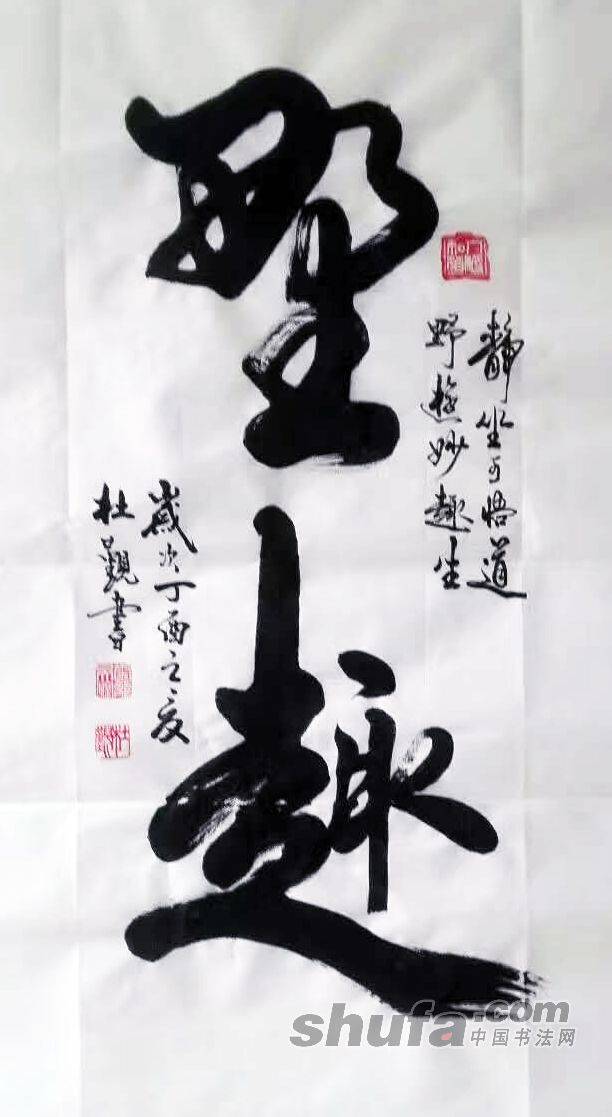 野趣
静坐可悟道
野妙趣生
歲次丁酉之夏
杜觀書
shufa.com
中国书法网